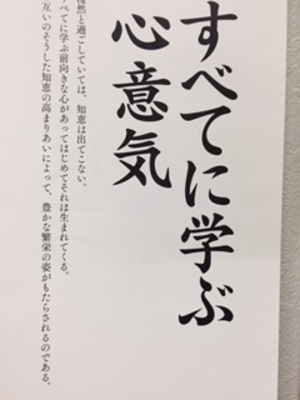 すべてに学ぶ
心意気
然と過ごしていては、知恵は出てこない。
べてに学ぶ前向きな心があってはじめてそれは生まれてくる。
互いのそうした知恵の高まりあいによって、豊かな繁栄の姿がもたらされるのである。